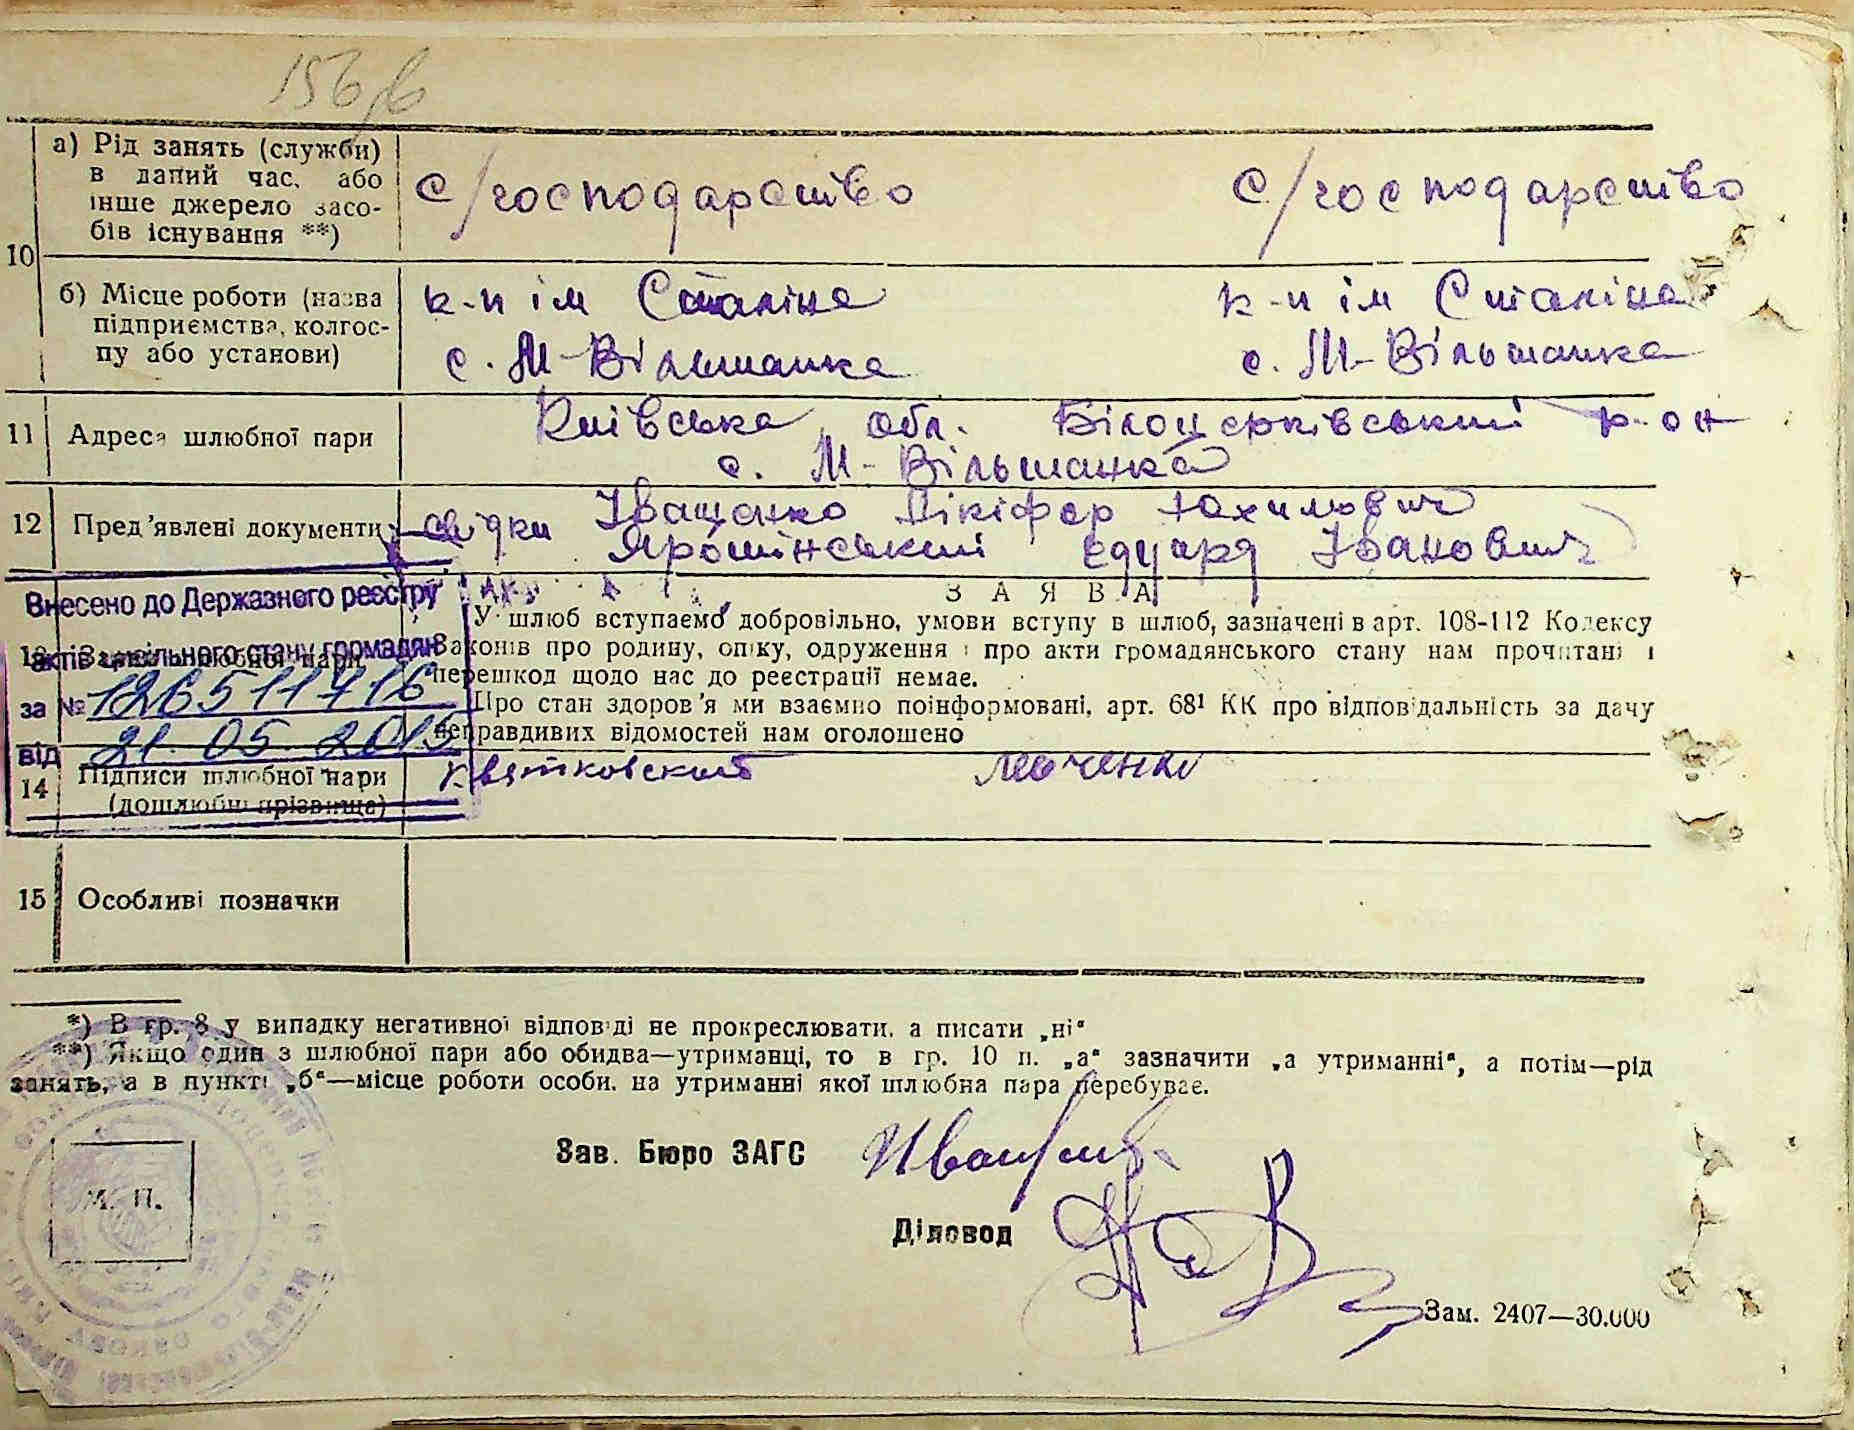 156
10
а) Рід занять (служби)
в даний час, або
інше джерело засо-
бів існування **)
с/господарство с/господарство
б) Місце роботи (назва
підприємства, колгос-
пу або установи)
к-п ім Сталіна к-п ім Сталіна
с. М-Вільшанка с. М-Вільшанка
11 Адреса шлюбної пари
Київська обл. Білоцерківський р-он
с. М-Вільшанка
12 Пред'явлені документи
свідки Іващенко Нікіфор
Ярошінський Едуард Іванович
Внесено до Державного реєстру
актів цивільного стану громадян
за № 126511716
від 21. 05. 2015
ЗАЯВА
У шлюб вступаємо добровільно, умови вступу в шлюб, зазначені в арт. 108-112 Кодексу
Законів про родину, опіку, одруження і про акти громадянського стану нам прочитані і
перешкод щодо нас до реєстрації немає.
Про стан здоров'я ми взаємно поінформовані, арт. 68¹ КК про відповідальність за дачу
неправдивих відомостей нам оголошено
13 Заява шлюбної пари
14 Підписи шлюбної пари
(дошлюбні прізвища)
Квятковский Левченко
15 Особливі позначки
*) В гр. 8 у випадку негативної відповіді не прокреслювати, а писати „ні“
**) Якщо один з шлюбної пари або обидва—утриманці, то в гр. 10 п. „а“ зазначити „а утриманні“, а потім—рід
занять, а в пункті „б“—місце роботи особи, на утриманні якої шлюбна пара перебуває.
М. П.
Зав. Бюро ЗАГС
Діловод
Зам. 2407—30.000